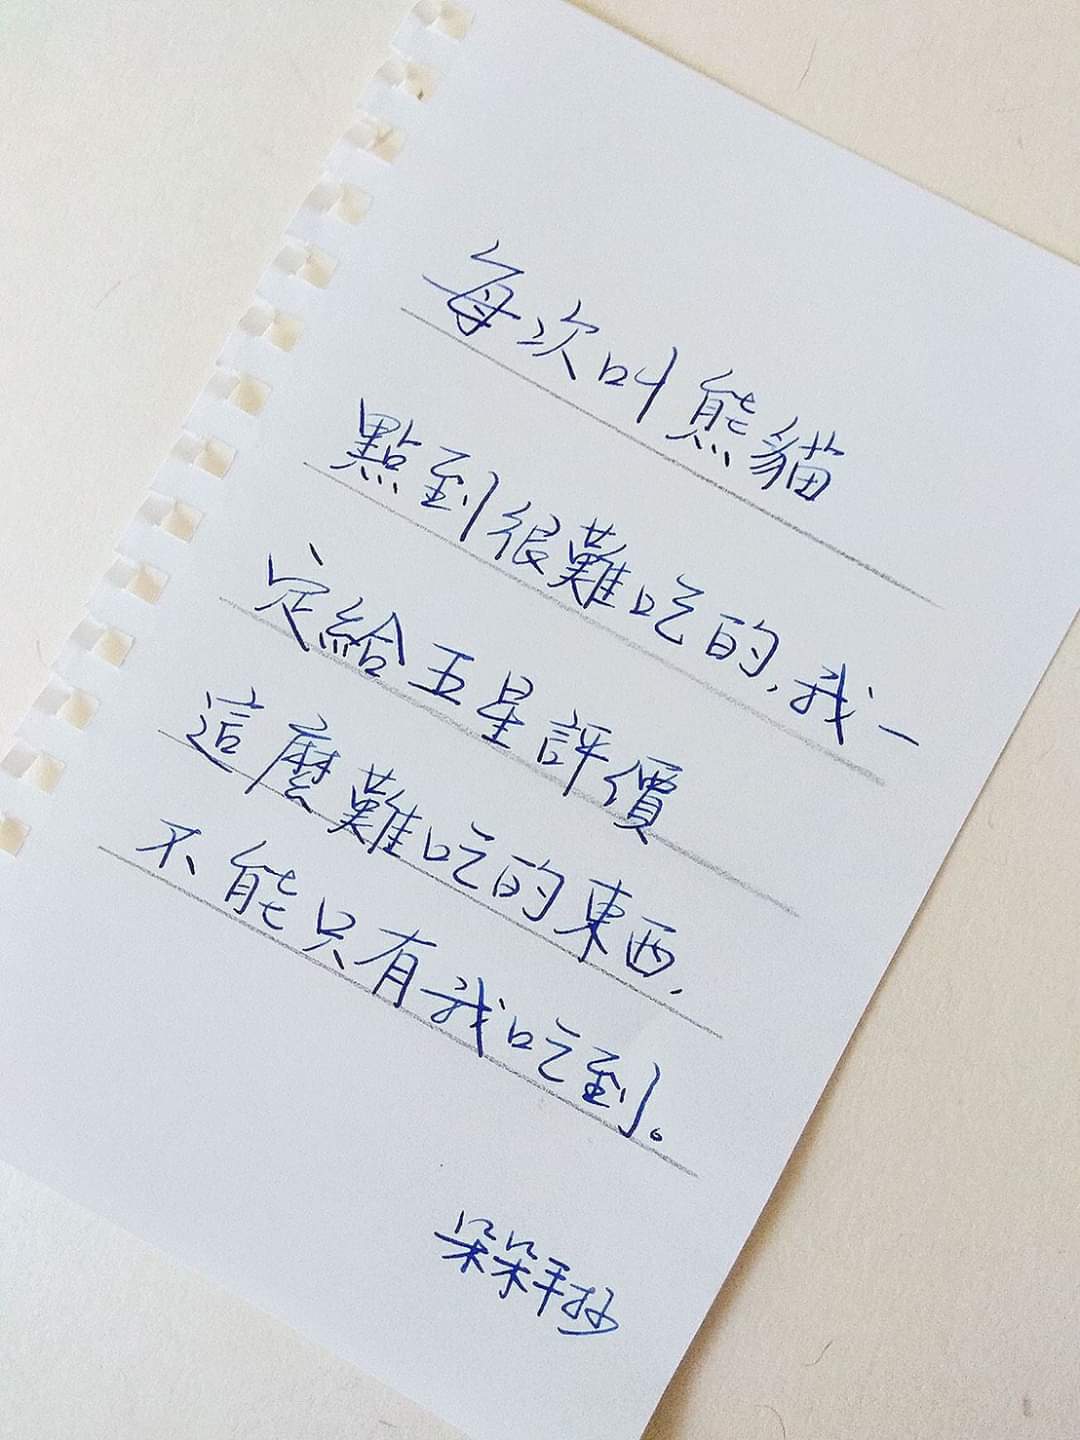 每次叫熊貓
點到很難吃的,我一
定給五星評價
這麼難吃的東西,
不能只有我吃到。
朵朵手抄